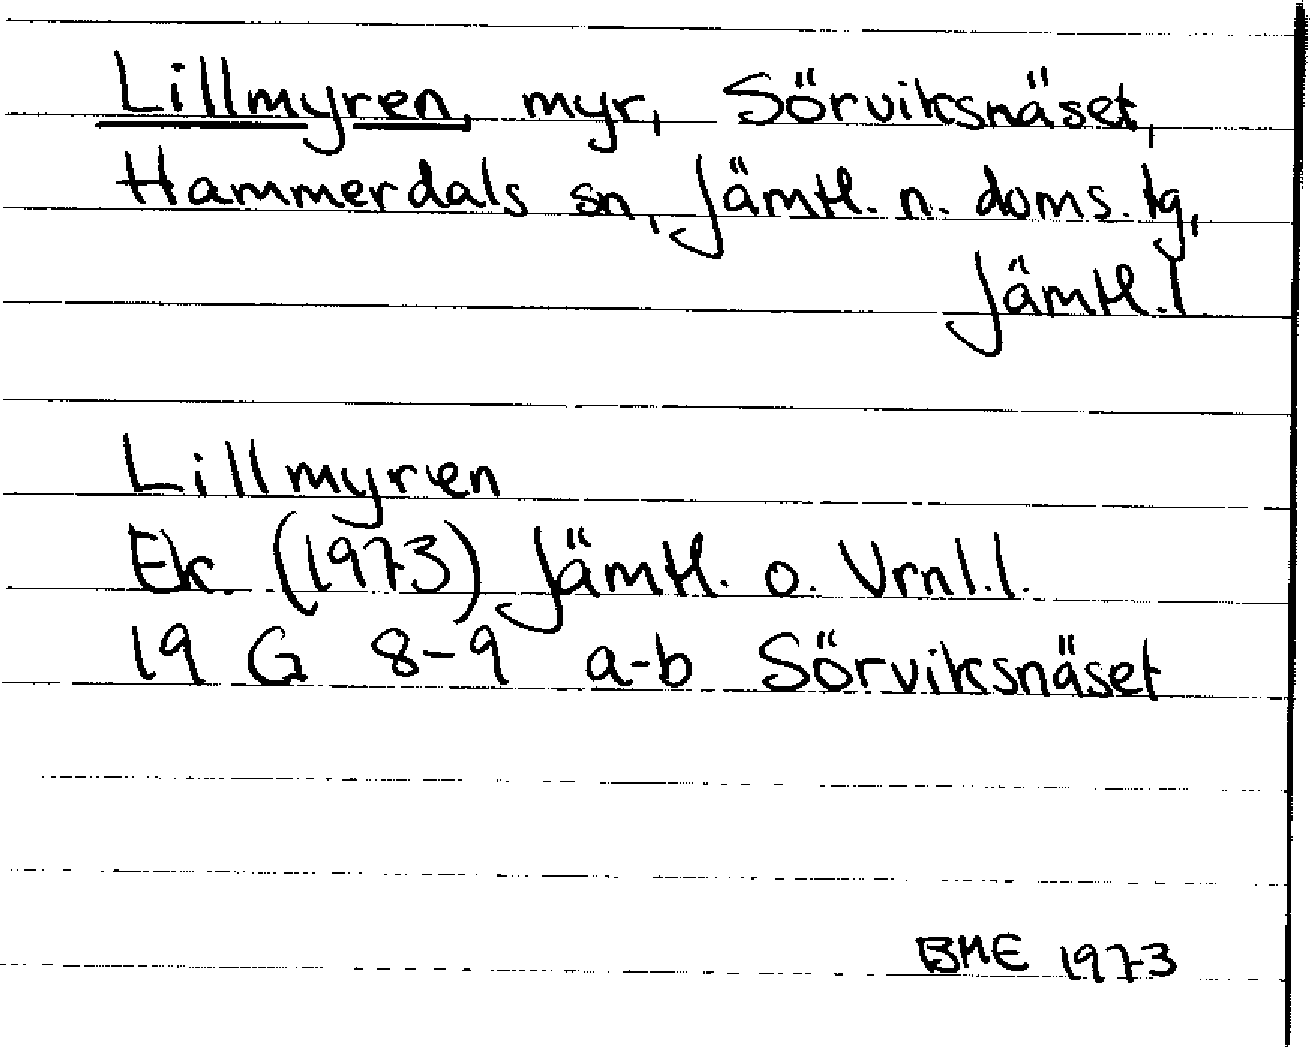 Lillmyren, myr, Sörviksnäset,
Hammerdals sn, Jämtl. n. doms. tg,
Jämtl. l.
Lillmyren
Ek. (1973) Jämtl. o. Vrnl. l.
19 G 8-9 a-b Sörviksnäset
BME 1973